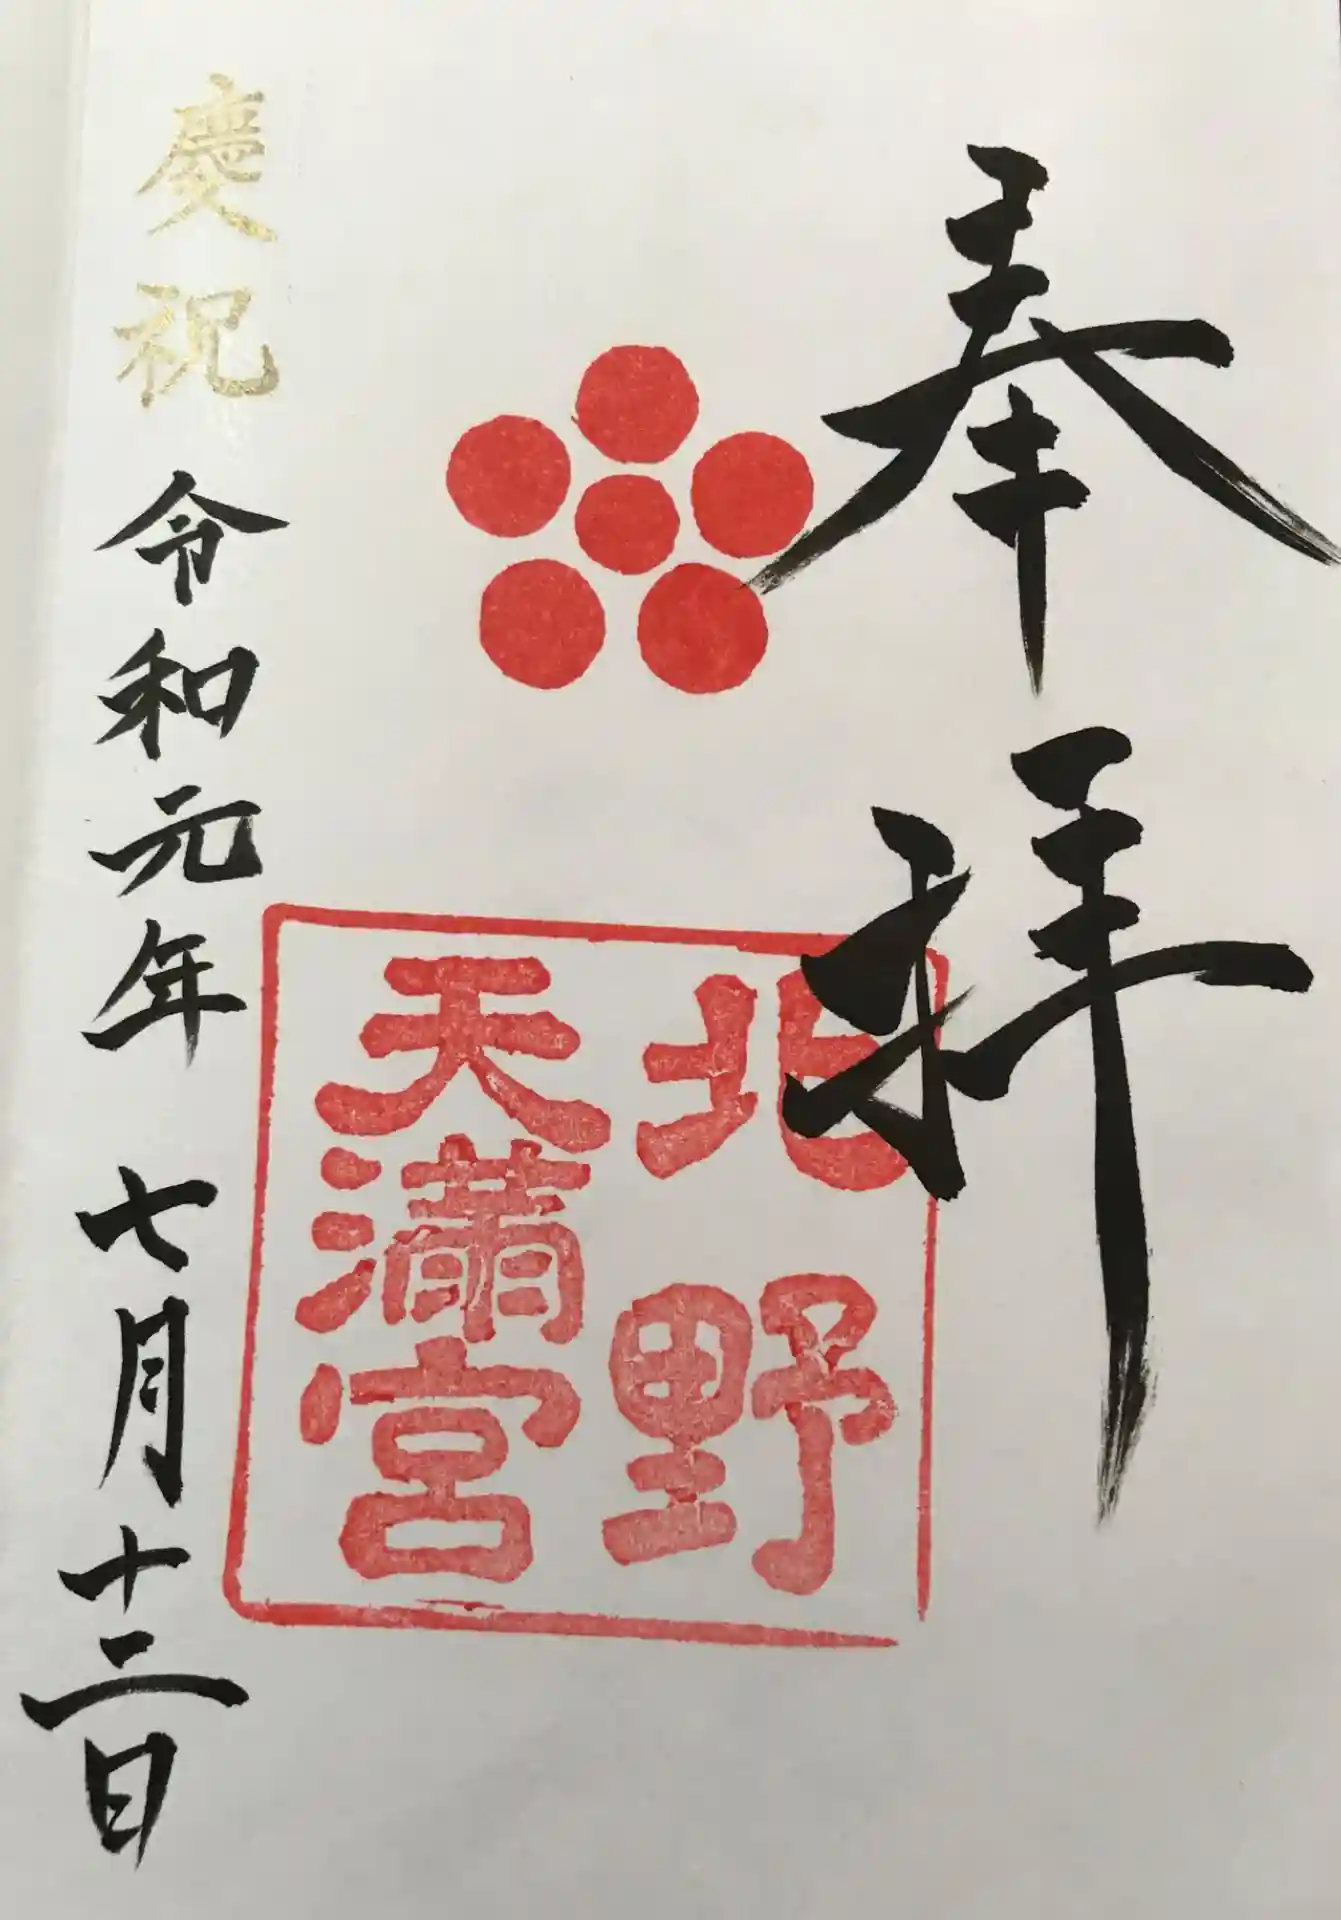 奉拝
北野
天満宮
慶祝
令和元年 七月十二日